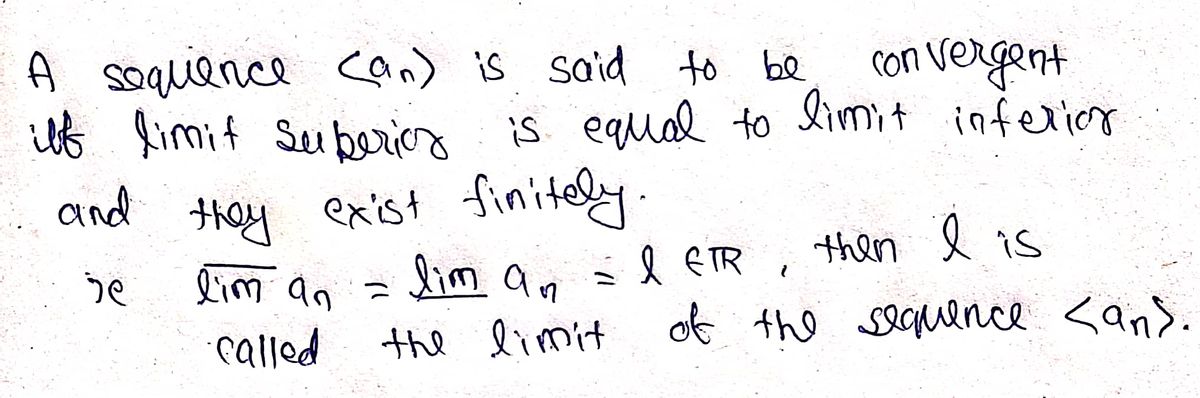 A sequence <an> is said to be convergent
iff limit superior is equal to limit inferior
and they exist finitely.
ie l̅i̅m̅ an = l̲i̲m̲ an = l ∈ ℝ, then l is
called the limit of the sequence <an>.